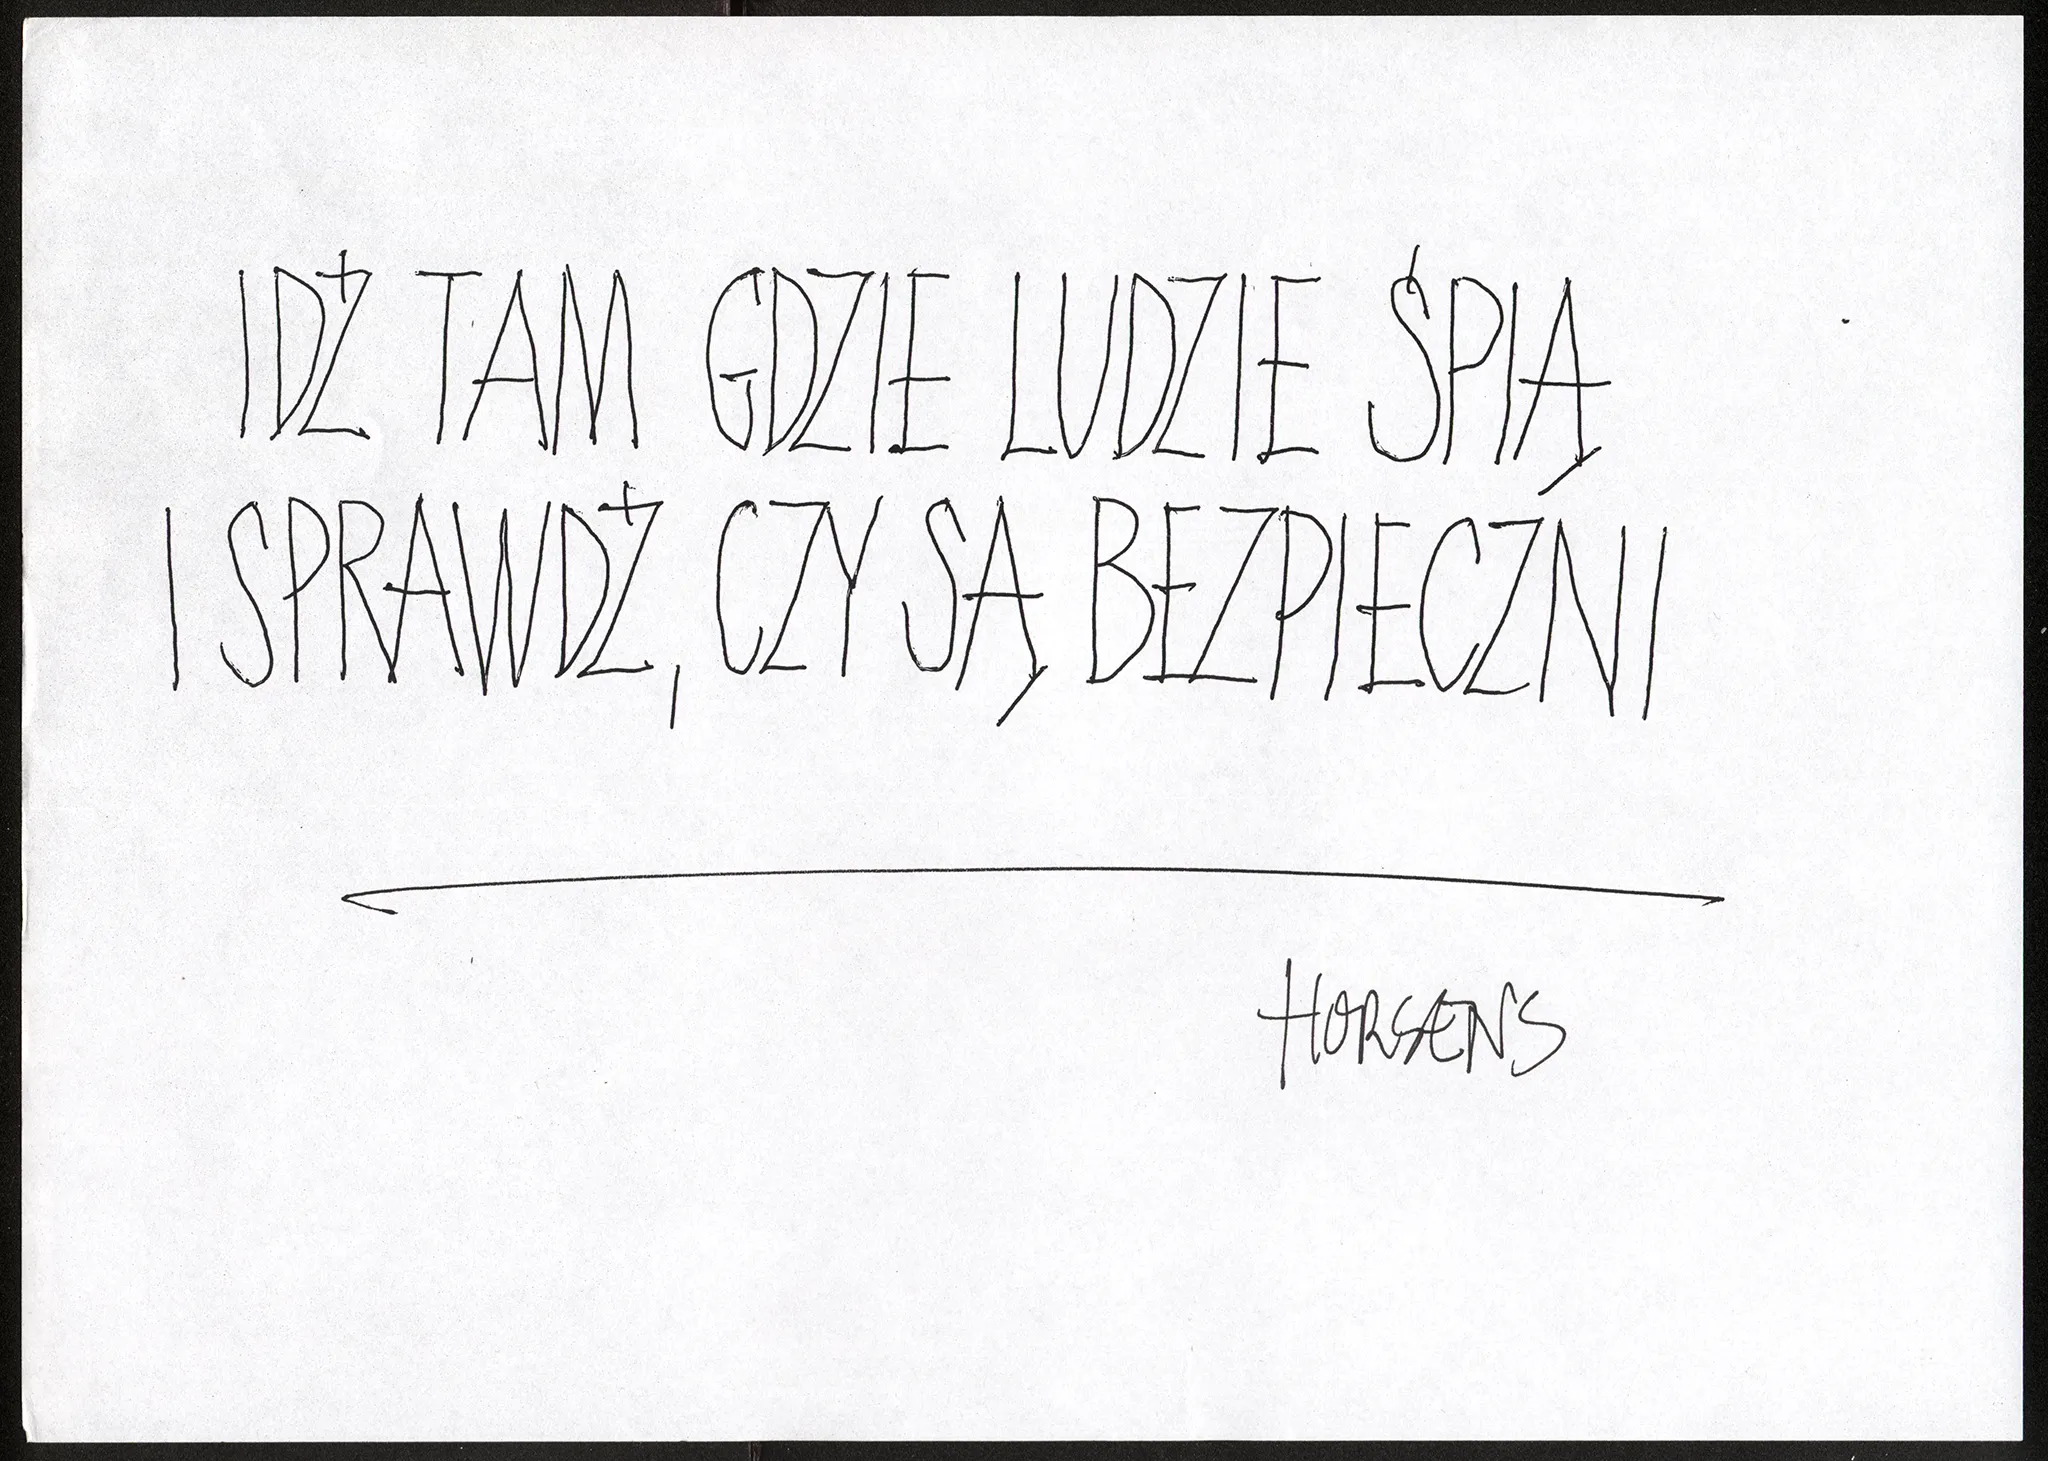 IDŹ TAM GDZIE LUDZIE ŚPIĄ
I SPRAWDŹ, CZY SĄ BEZPIECZNI
HORSENS